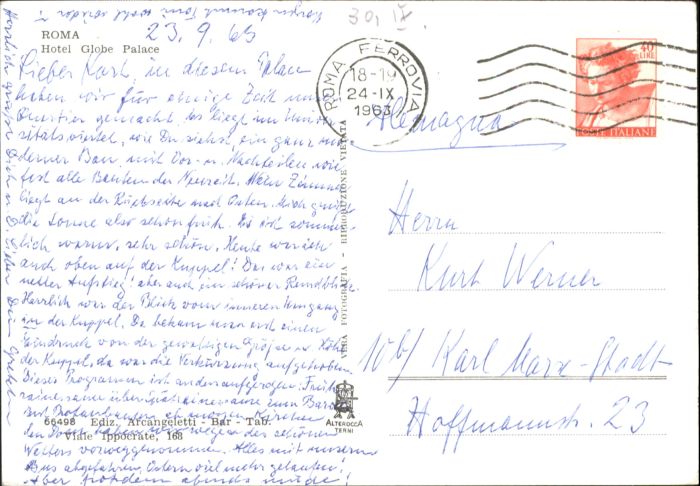 ROMA
Hotel Globe Palace
23.9.63
Lieber Kurt, in diesem Palace
haben wir für einige Zeit un
Quartier gemacht. Es liegt im Univer
sitätsviertel, wie Du siehst, ein ganz mo
derner Bau, mit Vor- u. Nachteilen wie
fast alle Bauten der Neuzeit. Mein Zimmer
liegt an der Rückseite nach Osten.
die Sonne also schon früh. Es ist sommer-
lich warm, sehr schön. Heute war ich
auch oben auf der Kuppel! Das war ein
netter Aufstieg! aber auch ein schöner Rundblick
Herrlich war der Blick vom inneren Umgang
in der Kuppel. Da bekam man erst einen
Eindruck von der gewaltigen Größe u. Höhe
der Kuppel, da war die Verkürzung aufgehoben
Dieses Programm ist anders aufgezogen.
zum Baro
den wegen des schönen
Wetters vorweggenommen. Alles mit unserem
Bus abgefahren, Ostern viel mehr gelaufen!
Aber trotzdem abends müde!
66498 Ediz. Arcangeletti - Bar - Tab.
Viale Ippocrate, 168
VERA FOTOGRAFIA - RIPRODUZIONE VIETATA
ALTEROCCA
TERNI
30. IX.
ROMA FERROVIA
18-19
24-IX
1963
40 LIRE
POSTE ITALIANE
Allemagna
Herrn
Kurt Werner
10b/ Karl-Marx-Stadt
Hoffmannstr. 23